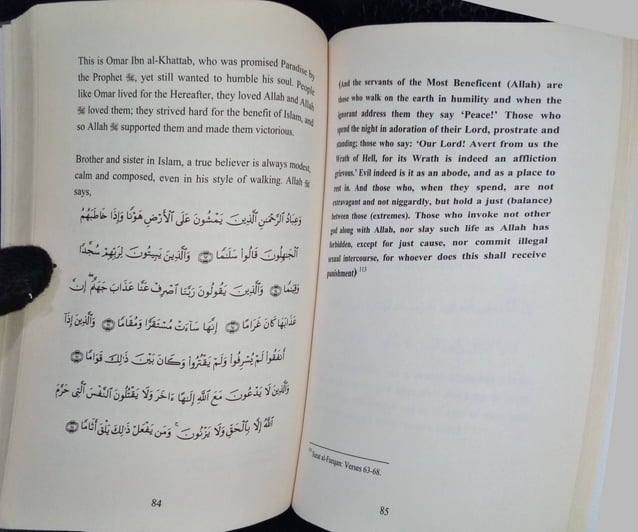 This is Omar Ibn al-Khattab, who was promised Paradise by
the Prophet ﷺ, yet still wanted to humble his soul. People
like Omar lived for the Hereafter, they loved Allah and Allah
ﷻ loved them; they strived hard for the benefit of Islam, and
so Allah ﷻ supported them and made them victorious.
Brother and sister in Islam, a true believer is always modest,
calm and composed, even in his style of walking. Allah ﷻ
says,
وَعِبَادُ ٱلرَّحْمَٰنِ ٱلَّذِينَ يَمْشُونَ عَلَى ٱلْأَرْضِ هَوْنًا وَإِذَا خَاطَبَهُمُ
ٱلْجَٰهِلُونَ قَالُوا۟ سَلَٰمًا ﴿٦٣﴾ وَٱلَّذِينَ يَبِيتُونَ لِرَبِّهِمْ سُجَّدًا
وَقِيَٰمًا ﴿٦٤﴾ وَٱلَّذِينَ يَقُولُونَ رَبَّنَا ٱصْرِفْ عَنَّا عَذَابَ جَهَنَّمَ ۖ إِنَّ
عَذَابَهَا كَانَ غَرَامًا ﴿٦٥﴾ إِنَّهَا سَآءَتْ مُسْتَقَرًّا وَمُقَامًا ﴿٦٦﴾ وَٱلَّذِينَ إِذَآ
أَنفَقُوا۟ لَمْ يُسْرِفُوا۟ وَلَمْ يَقْتُرُوا۟ وَكَانَ بَيْنَ ذَٰلِكَ قَوَامًا ﴿٦٧﴾
وَٱلَّذِينَ لَا يَدْعُونَ مَعَ ٱللَّهِ إِلَٰهًا ءَاخَرَ وَلَا يَقْتُلُونَ ٱلنَّفْسَ ٱلَّتِى حَرَّمَ
ٱللَّهُ إِلَّا بِٱلْحَقِّ وَلَا يَزْنُونَ ۚ وَمَن يَفْعَلْ ذَٰلِكَ يَلْقَ أَثَامًا ﴿٦٨﴾
84
(And the servants of the Most Beneficent (Allah) are
those who walk on the earth in humility and when the
ignorant address them they say ‘Peace!’ Those who
spend the night in adoration of their Lord, prostrate and
standing; those who say: ‘Our Lord! Avert from us the
Wrath of Hell, for its Wrath is indeed an affliction
grievous.’ Evil indeed is it as an abode, and as a place to
rest in. And those who, when they spend, are not
extravagant and not niggardly, but hold a just (balance)
between those (extremes). Those who invoke not other
god along with Allah, nor slay such life as Allah has
forbidden, except for just cause, nor commit illegal
sexual intercourse, for whoever does this shall receive
punishment) [1]
[1] Surat al-Furqan: Verses 63-68.
85